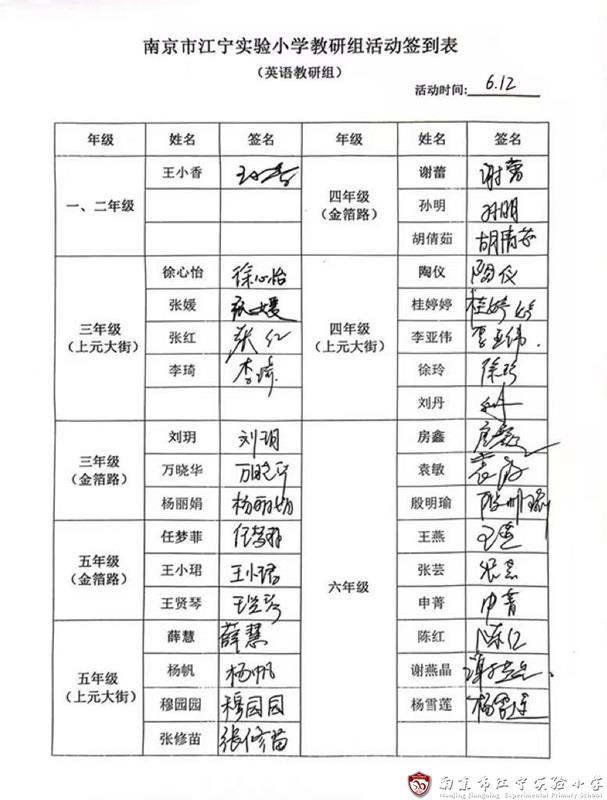 南京市江宁实验小学教研组活动签到表
（英语教研组）
活动时间: 6.12
年级 姓名 签名 年级 姓名 签名
一、二年级 王小香 四年级（金箔路） 谢蕾 谢蕾
孙明 孙明
胡倩茹 胡倩茹
三年级（上元大街） 徐心怡 徐心怡 四年级（上元大街） 陶仪 陶仪
张媛 张媛 桂婷婷 桂婷婷
张红 张红 李亚伟 李亚伟
李琦 李琦 徐玲 徐玲
刘丹
三年级（金箔路） 刘玥 刘玥 六年级 房鑫 房鑫
万晓华 万晓华 袁敏 袁敏
杨丽娟 杨丽娟 殷明瑜 殷明瑜
五年级（金箔路） 任梦菲 任梦菲 王燕 王燕
王小珺 王小珺 张芸 张芸
王贤琴 王贤琴 申菁 申菁
五年级（上元大街） 薛慧 薛慧 陈红 陈红
杨帆 杨帆 谢燕晶
穆园园 穆园园 杨雪莲 杨雪莲
张修苗 张修苗
南京市江宁实验小学
Nanjing Jiangning Experimental Primary School